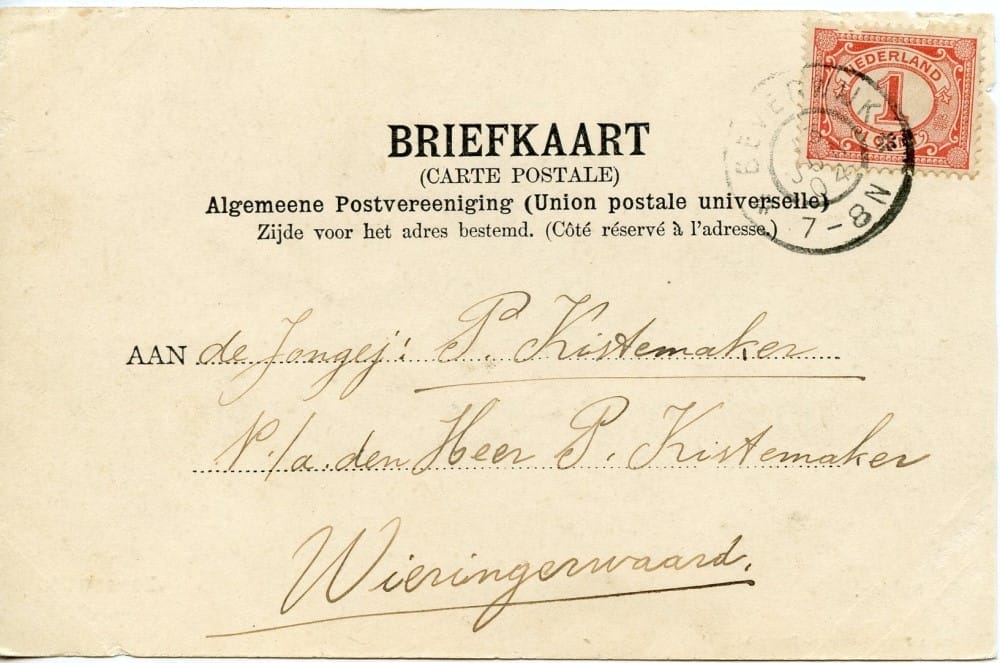 NEDERLAND
1
BEVERWIJK
7-8N
BRIEFKAART
(CARTE POSTALE)
Algemeene Postvereeniging (Union postale universelle)
Zijde voor het adres bestemd. (Côté réservé à l'adresse.)
AAN de Jongej: P. Kistemaker
P./a. den Heer P. Kistemaker
Wieringerwaard.